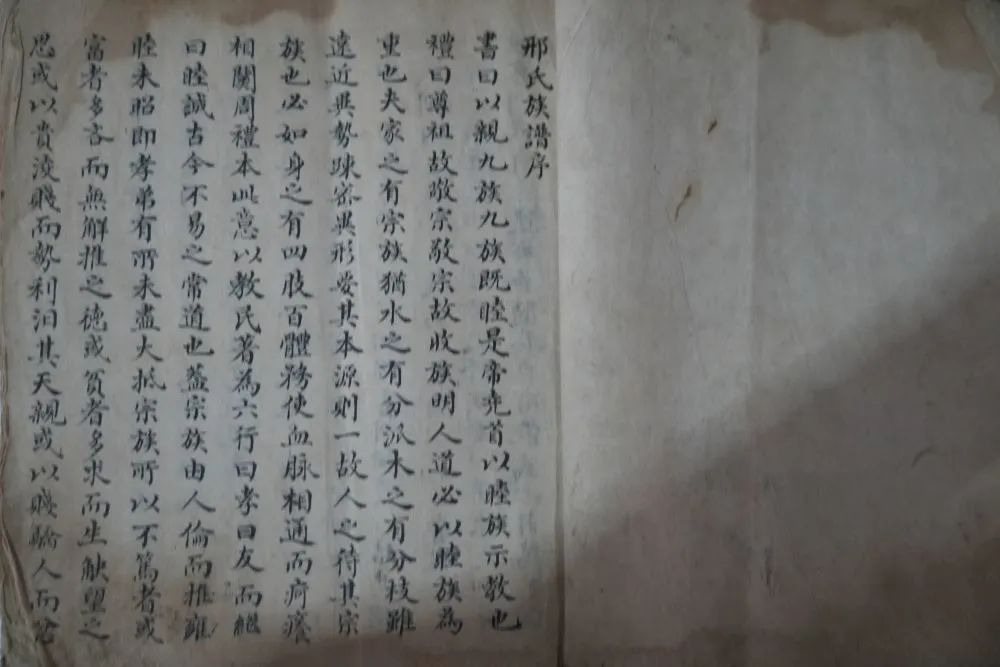 邢氏族譜序
書曰以親九族九族既睦是帝堯首以睦族示教也
禮曰尊祖故敬宗敬宗故收族明人道必以睦族為
重也夫家之有宗族猶水之有分派木之有分枝雖
遠近異勢踈宻異形要其本源則一故人之待其宗
族也必如身之有四肢百體務使血脉相通而疴癢
相關周禮本此意以教民著為六行曰孝曰友而繼
曰睦誠古今不易之常道也蓋宗族由人倫而推雍
睦未昭即孝弟有所未盡大抵宗族所以不篤者或
富者多吝而無解推之德或貧者多求而生觖望之
思或以貴凌賤而勢利汨其天親或以賤驕人而忿